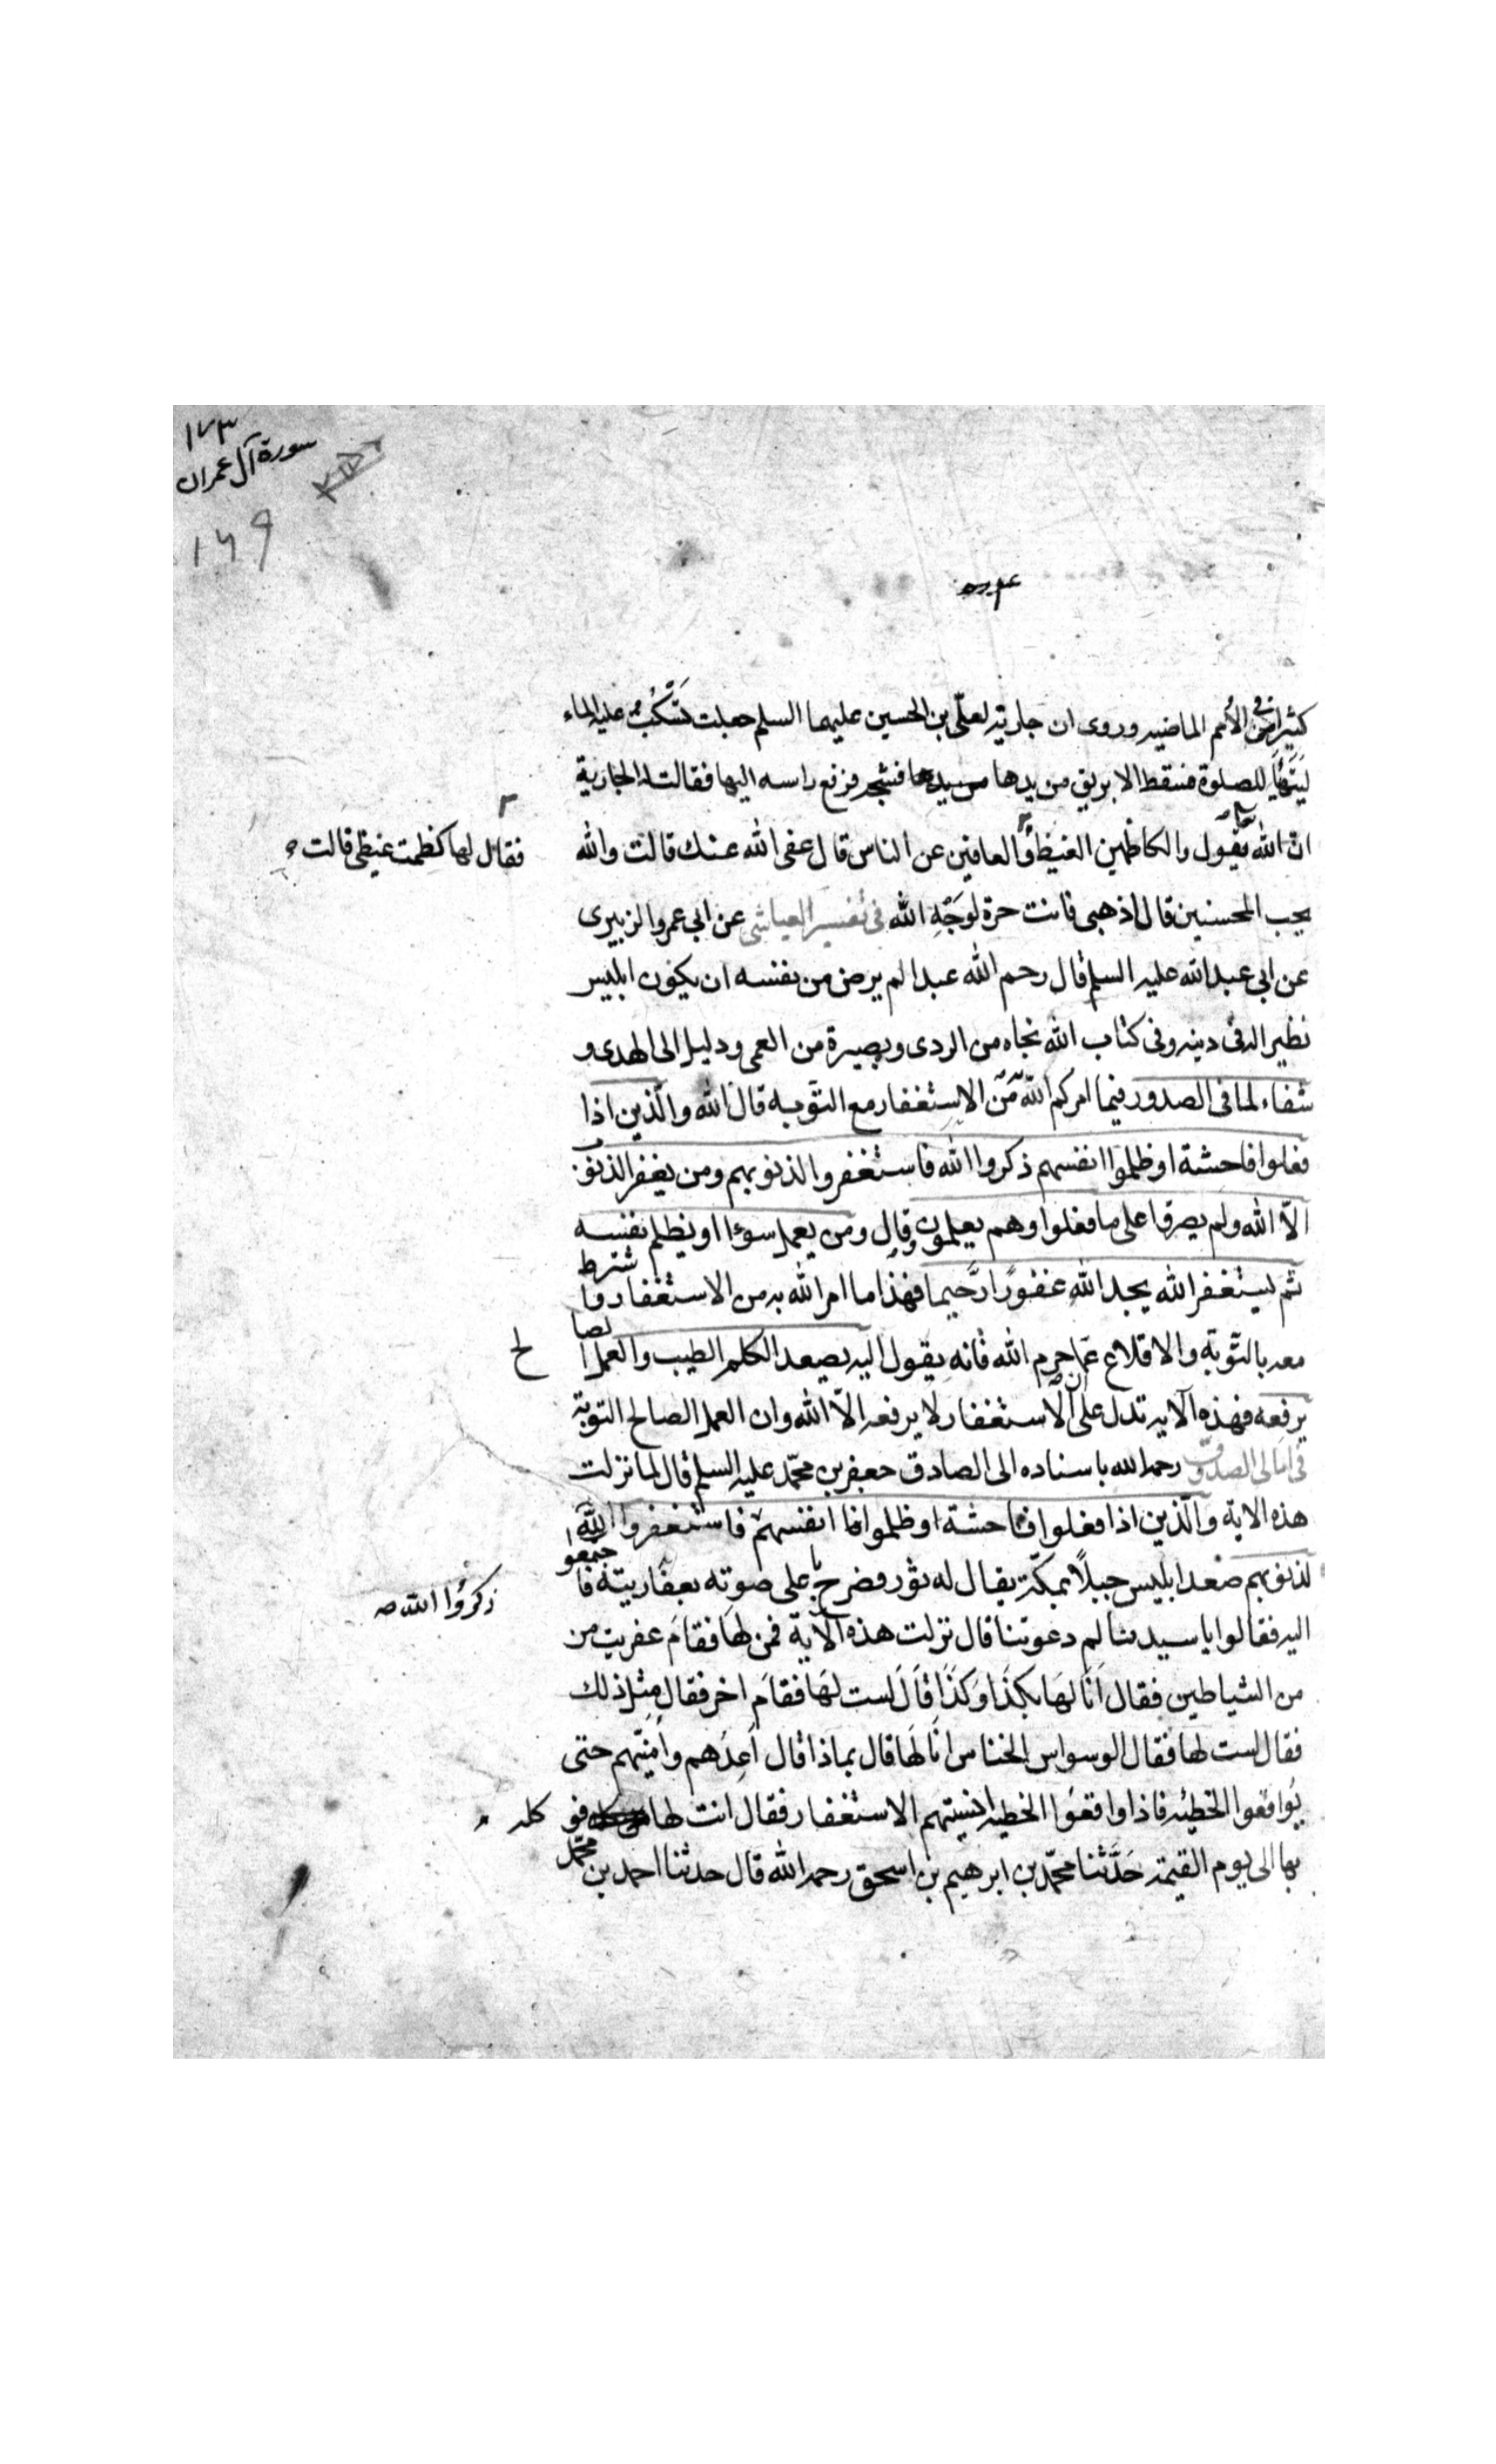 ١٧٣
سورة آل عمران
١٤٩
كثيرا في الأمم الماضيه وروى ان جارية لعلّي بن الحسين عليهما السلم جعلت تَسْكُبُ عليه الماء
ليَتَهَيَّأَ للصلوة فسقط الابريق من يدها فشجه فرفع راسه اليها فقالت له الجارية
ان الله تعالى يقول والكاظمين الغيظ والعافين عن الناس قال عفى الله عنك قالت والله
فقال لها كظمت غيظي قالت
يحب المحسنين قال اذهبى فانت حرة لوَجْهِ الله في تفسير العياشى عن ابي عمرو الزبيرى
عن ابي عبد الله عليه السلم قال رحم الله عبدا لم يرض من نفسه ان يكون ابليس
نظيرا له في دينه وفى كتاب الله نجاه من الردى وبصيرة من العمى ودليل الى الهدى و
شفاء لما فى الصدور فيما امركم الله من الاستغفار مع التوبه قال الله والّذين اذا
فعلوا فاحشة او ظلموا انفسهم ذكروا الله فاستغفروا لذنوبهم ومن يغفر الذنوب
الّا الله ولم يصروا على ما فعلوا وهم يعلمون وقال ومن يعمل سوءا او يظلم نفسه
ثم يستغفر الله يجد الله غفورًا رحيما فهذا ما امر الله به من الاستغفار واشترط
معه بالتّوبة والاقلاع عمّا حرم الله فانه يقول اليه يصعد الكلم الطيب والعمل الصالح
يرفعه فهذه الآيه تدل على ان الاستغفار لا يرفعه الّا الله وان العمل الصالح التوبة
فى امالى الصدوق رحمه الله باسناده الى الصادق جعفر بن محمّد عليه السلم قال لما نزلت
هذه الاية والّذين اذا فعلوا فاحشة او ظلموا انفسهم فاستغفروا الله
لذنوبهم صعد ابليس جبلًا بمكّة يقال له ثور فصرخ باعلى صوته بعفاريته فاجتمعوا
ذكرُوا الله صه
اليه فقالوا يا سيدنا لم دعوتنا قال نزلت هذه الآية فمن لها فقامَ عفريت من
من الشياطين فقال اَنَا لهَا بكذَا وَكذَا قَالَ لست لهَا فقامَ اخر فقال مثل ذلك
فقال لست لها فقال الوسواس الخناس انا لها قال بماذا قال اَعِدُهم واُمَنّيهم حتى
يُوَاقعوا الخطيئه فاذا واقعوا الخطيه انسيتهم الاستغفار فقال انت لها فو كله
بها الى يوم القيمة حَدَّثنا محمّد بن ابرهيم بن اسحق رحمه الله قال حدثنا احمد بن محمّد